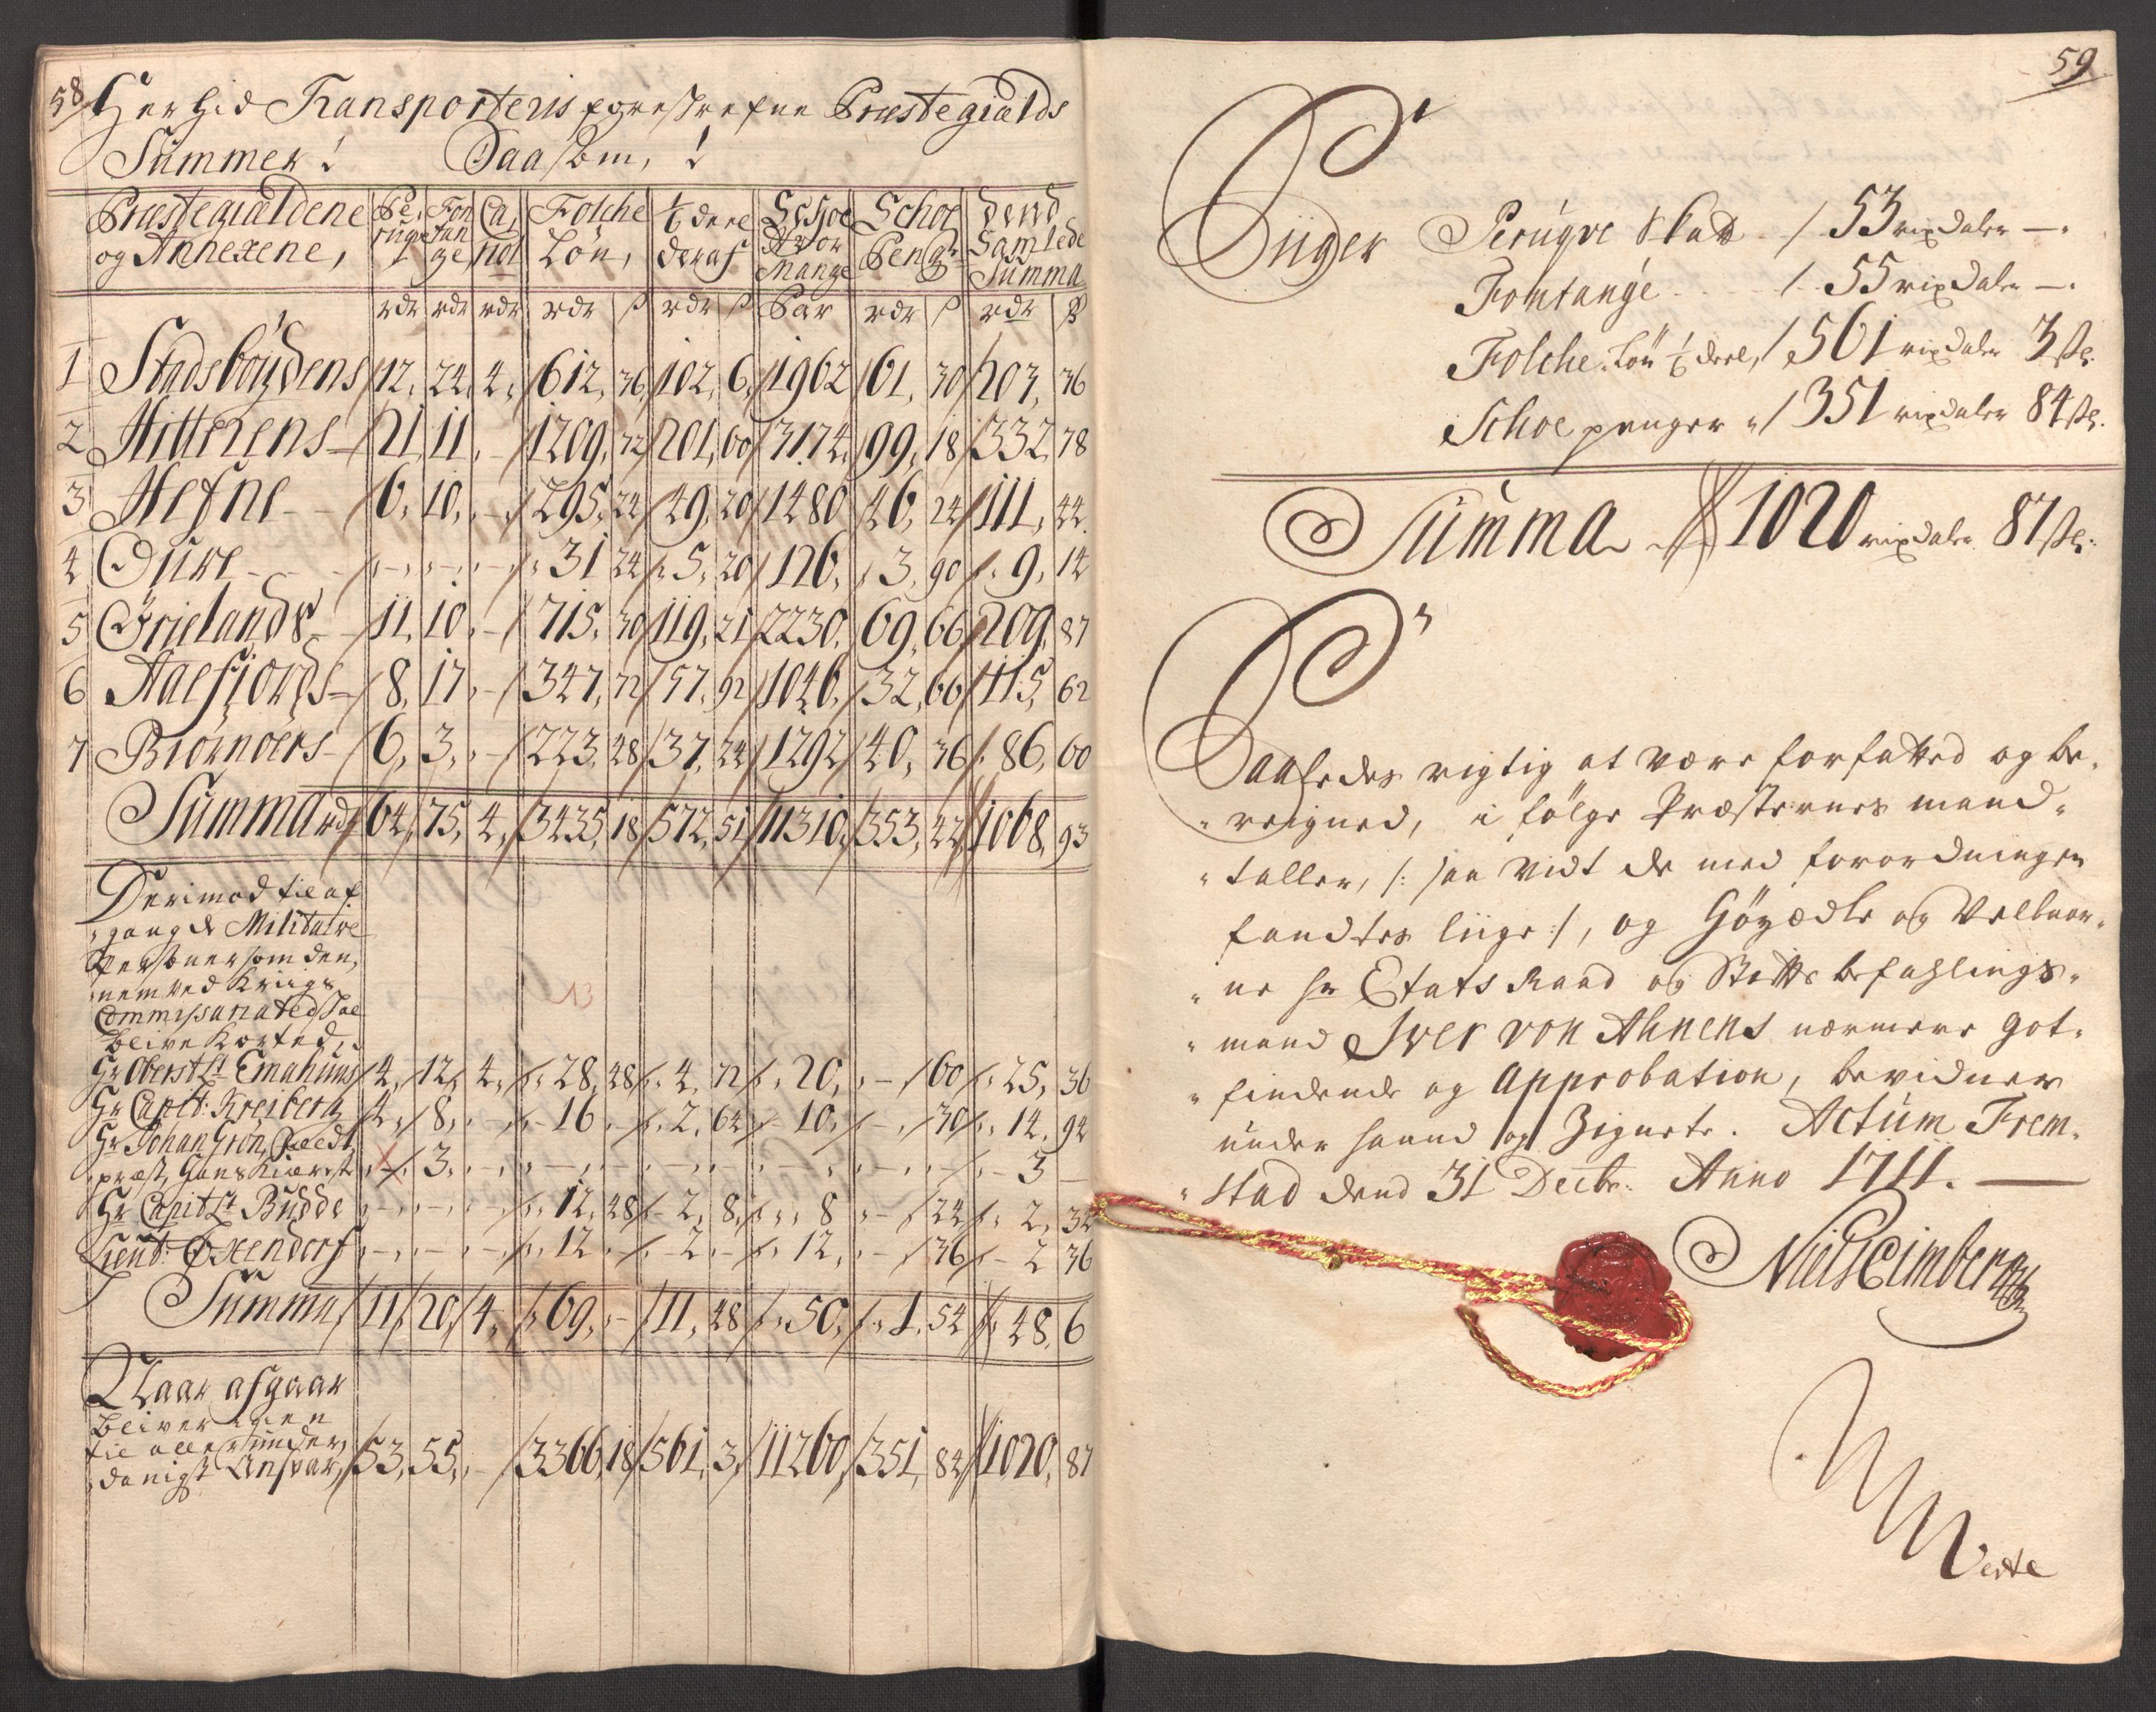 58
Her hid Transporteris forestrefne Præstegiælds
Summer! Saasom,!
Præstegiældene og Annexene, | Perrüqve | Fontange | Cariol | Folche Løn, | 1/6 deel deraf | Schoe Hvor Mange | Schoe Penge | Dend Samlede Summa
rdr | rdr | rdr | rdr ß | rdr ß | Par | rdr ß | rdr ß
1 Stadsbøÿdens 12, 24, 4, 612, 36, 102, 6, 1962 61, 30 203, 36
2 Hitterens 21, 11, - 1209, 72 201, 60 3174, 99, 18 332, 78
3 Hefne 6, 10, - 295, 24 49, 20 1480 46, 24 111, 44
4 Oure - - - 31 24 5, 20 126, 3, 90 9, 14
5 Ørielands 11, 10, - 715, 30 119, 21 2230, 69, 66 209, 87
6 Aaefiords 8, 17, - 347, 72 57, 92 1046, 32, 66 115, 62
7 Biørnøers 6, 3, - 223, 48 37, 24 1292 40, 36 86, 60
Summa rdr 64, 75, 4, 3435, 18 572, 51 11310, 353, 42 1068, 93
Derimod til af
gang de Militaire
Persöner som den,
nem ved Kriigs
Commissariated skal
blive Korted,
13
Hr Oberst Lt Emahuus 4, 12, 4, 28, 48 4, 72 20, - 60 25, 36
Hr Capit: Kreiberg 4, 8, - 16 - 2, 64 10, - 30 14, 94
Hr Johan Grøn, Feldt
præst, Hans Kiærest - 3, - - - - - 3 -
Hr Capit Lt Budde - - - 12, 48 2, 8, 8 - 24 2, 32
Lieut: Oxendorf - - - 12 - 2 - 12, - 36 2 36
Summa 11, 20, 4, 69, - 11, 48 50, 1, 54 48, 6
Naar afgaar
bliver igien
til aller under,
danigst Ansvar, 53, 55, - 3366, 18 561, 3, 11260, 351, 84 1020, 87
59
Siiger Perüqve Skat 53 rixdaler —.
Fontange 55 rixdaler —.
Folche Løn 1/6 deel, 561 rixdaler 3 sk.
Schoe penger 351 rixdaler 84 sk.
Summa 1020 rixdaler 87 sk.
Saaledes rigtig at være forfatted og be,
reigned, i følge Præsternes mand,
taller, /: saa vidt de med forordningen
fandtes liige :/, og Høyædle og Velbaar,
ne hr Etats Raad og Stiftsbefahlings,
mand Iver von Ahnens nærmere got,
findende og Approbation, bevidner
under haand og Zignete. Actum Trem,
stad dend 31 Decbr. Anno 1711.
Niels Eimberg
Verte